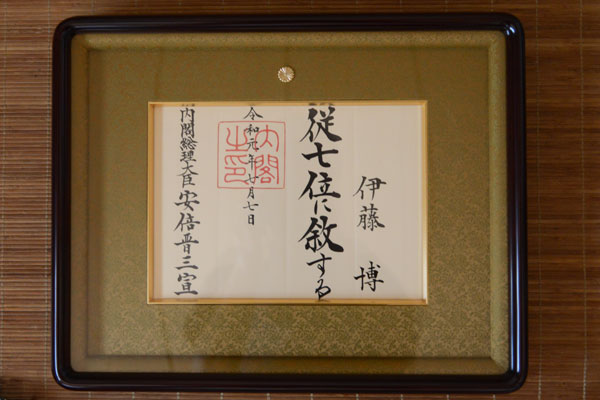 伊藤 博
従七位に敘する
令和元年 月七日
内閣総理大臣安倍晋三宣
内閣之印